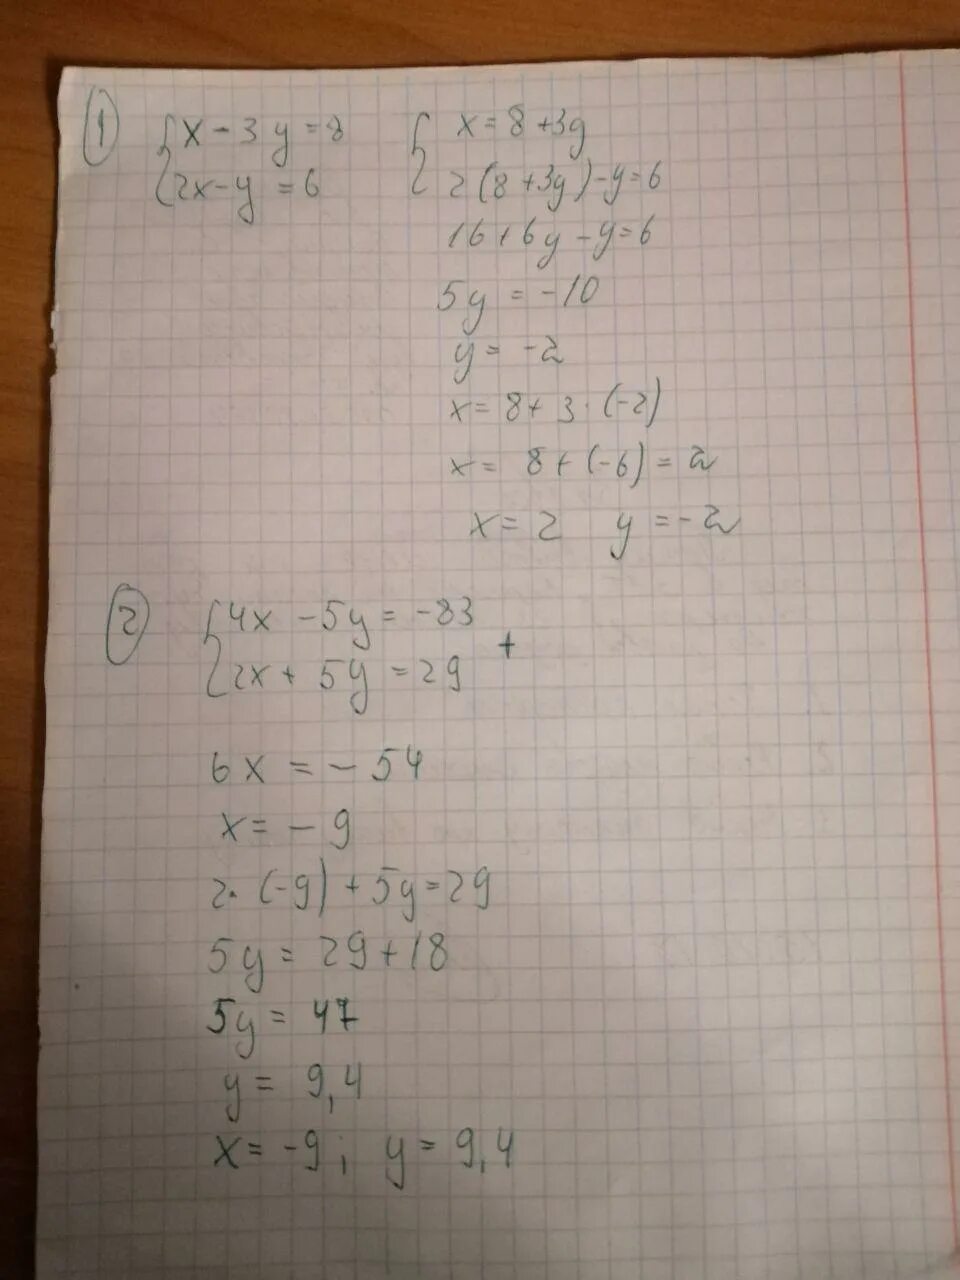 1 { x - 3y = 8
2x - y = 6
{ x = 8 + 3y
2(8 + 3y) - y = 6
16 + 6y - y = 6
5y = -10
y = -2
x = 8 + 3 · (-2)
x = 8 + (-6) = 2
x = 2 y = -2
2 { 4x - 5y = -83
2x + 5y = 29 +
6x = - 54
x = - 9
2 · (-9) + 5y = 29
5y = 29 + 18
5y = 47
y = 9,4
x = -9; y = 9,4